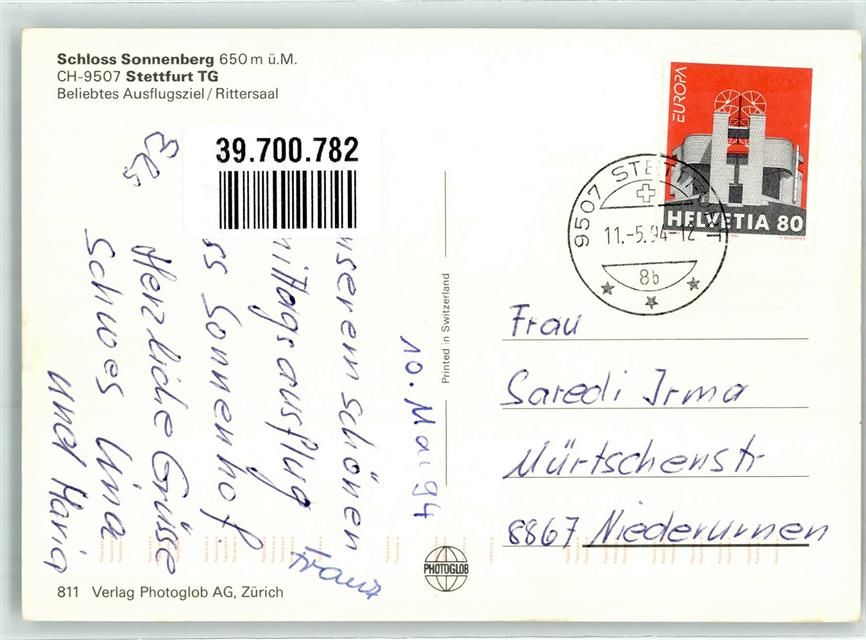 Schloss Sonnenberg 650 m ü.M.
CH-9507 Stettfurt TG
Beliebtes Ausflugsziel / Rittersaal
39.700.782
10. Mai 94
unserem schönen
mittagsausflug
ss Sonnenhof.
Herzliche Grüsse
Schwes Lina
und Maria
Franz
Printed in Switzerland
EUROPA
HELVETIA 80
9507 STETTFURT
11.-5.94-12
8b
Frau
Saredi Irma
Mürtschenstr
8867 Niederurnen
PHOTOGLOB
811 Verlag Photoglob AG, Zürich